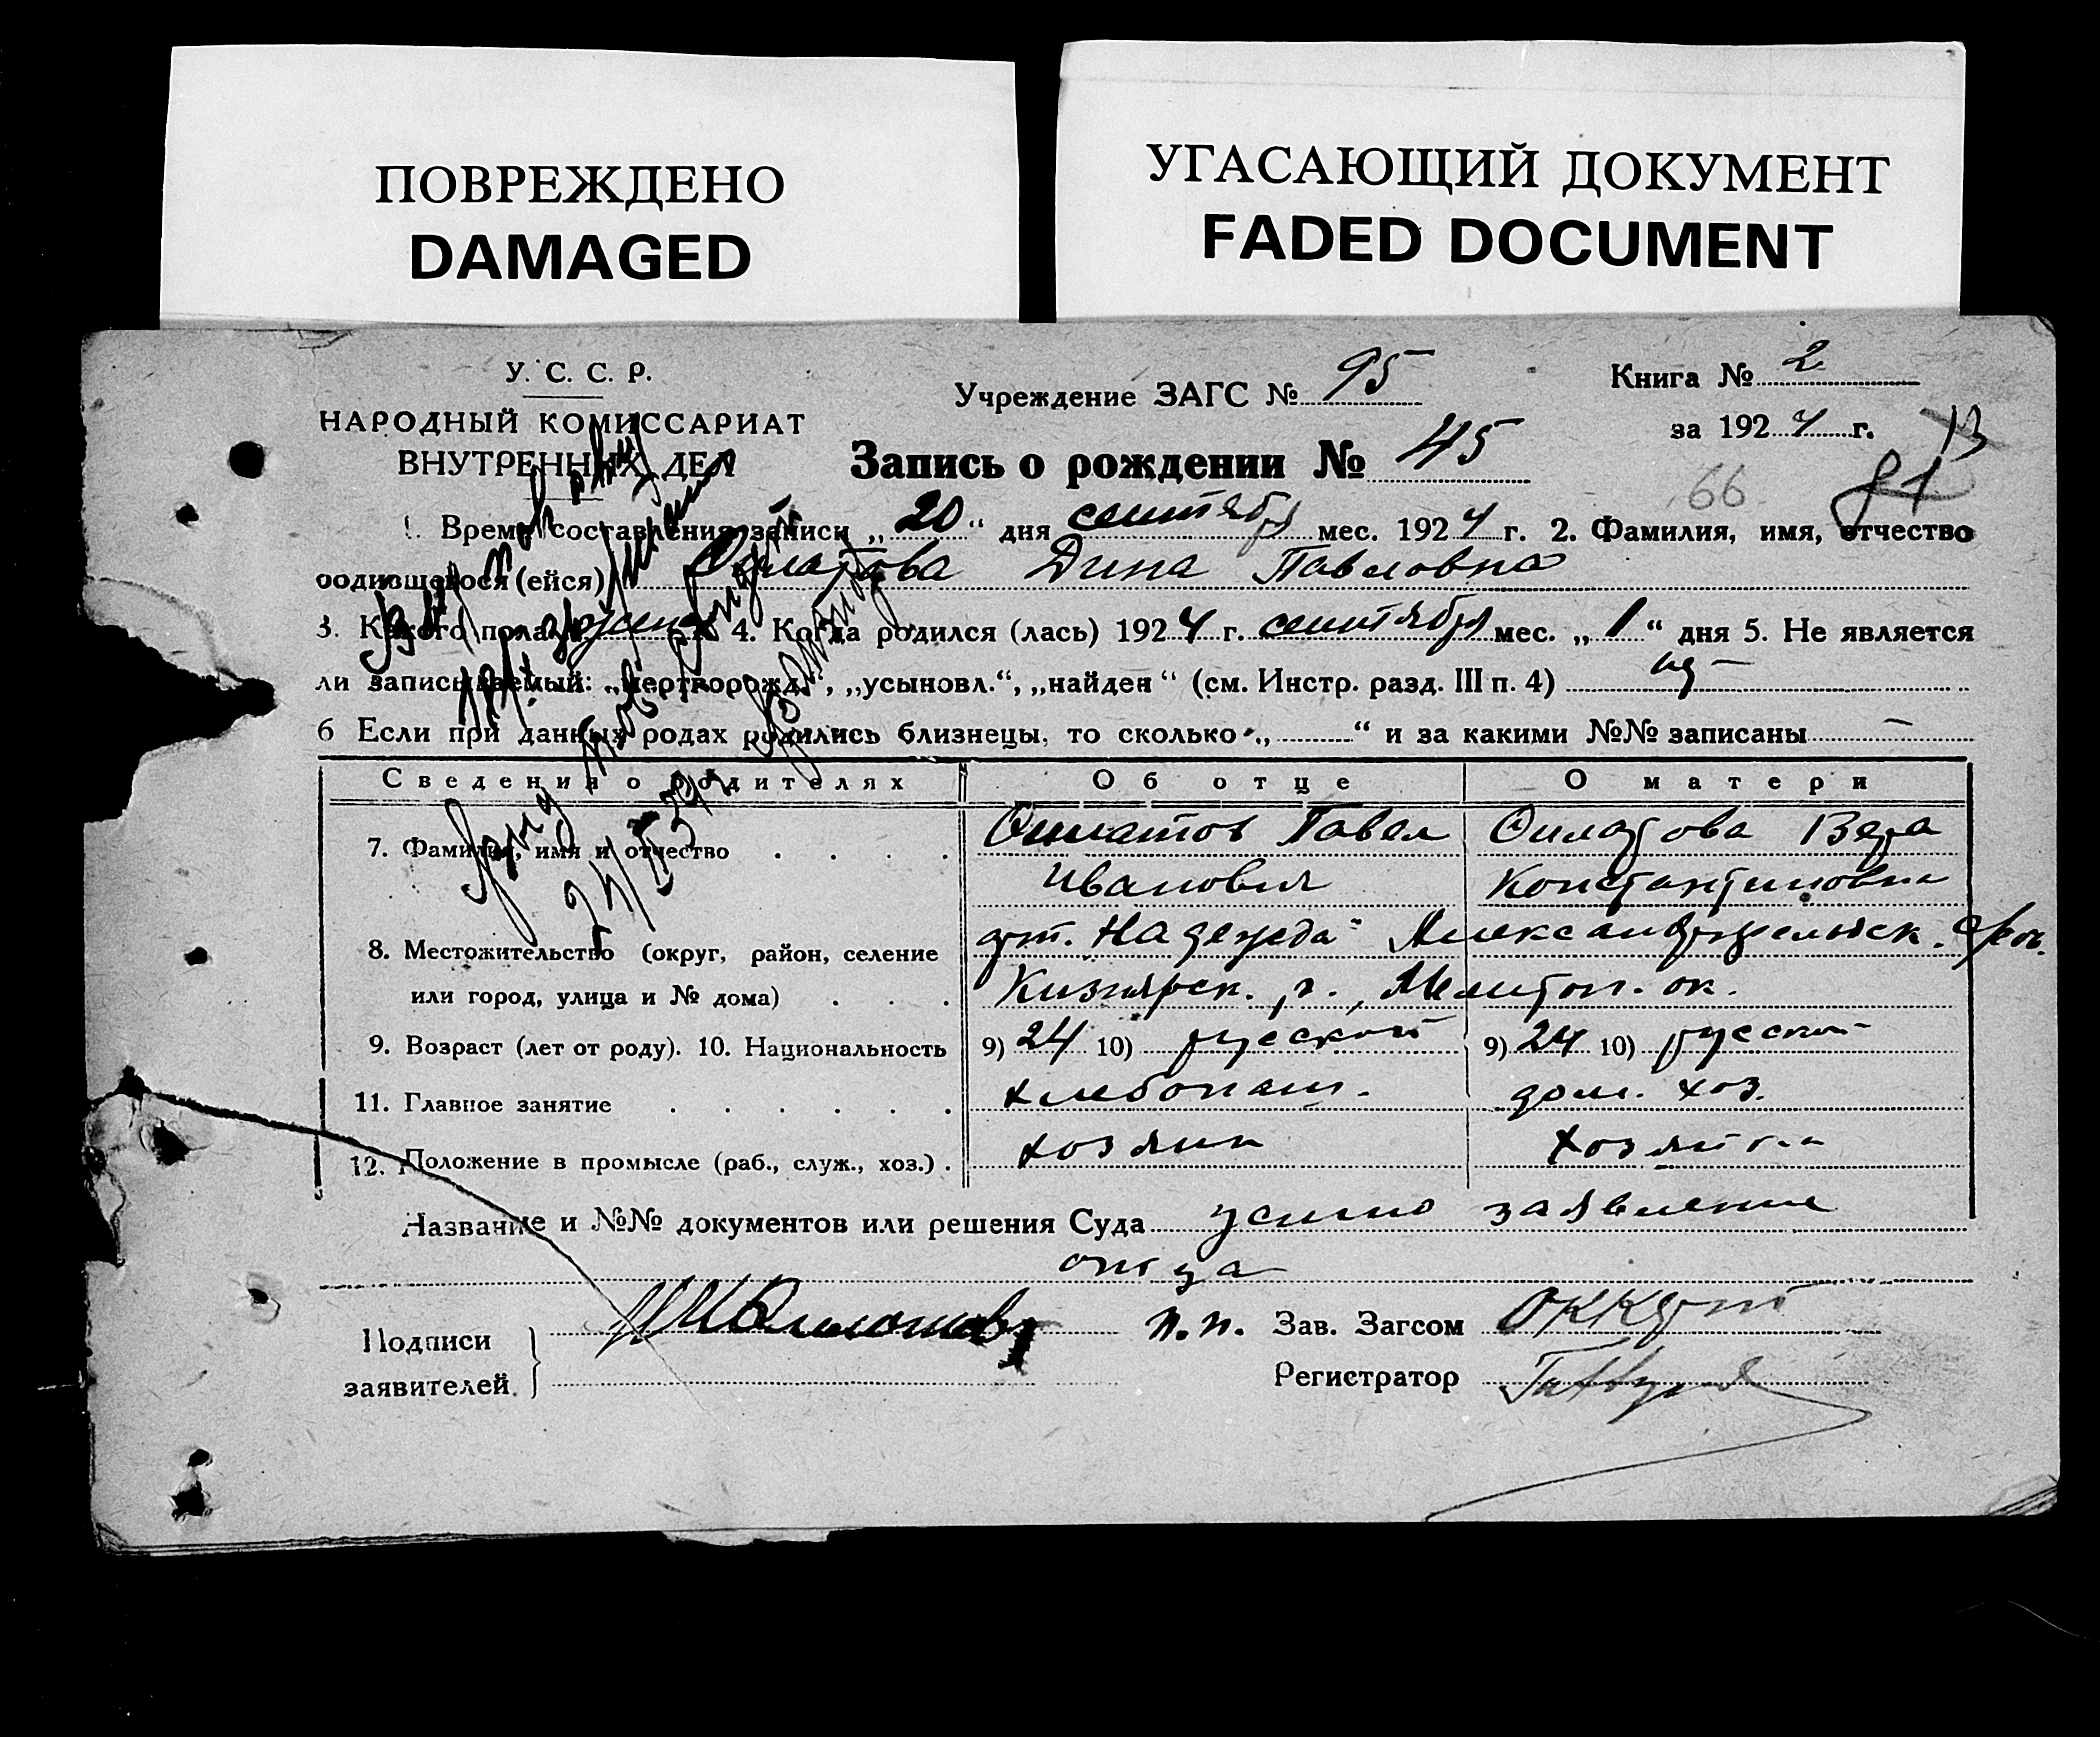 ПОВРЕЖДЕНО
DAMAGED
УГАСАЮЩИЙ ДОКУМЕНТ
FADED DOCUMENT
У. С. С. Р.
НАРОДНЫЙ КОМИССАРИАТ
ВНУТРЕННИХ ДЕЛ
Учреждение ЗАГС № 95
Книга № 2
за 1924 г.
13
Запись о рождении № 45
66
81
1. Время составления записи „20“ дня сентября мес. 1924 г. 2. Фамилия, имя, отчество
родившегося (ейся) Дина Павловна
3. Какого пола 4. Когда родился (лась) 1924 г. сентября мес. „1“ дня 5. Не является
ли записываемый: „мертворожд.“, „усыновл.“, „найден“ (см. Инстр. разд. III п. 4)
6 Если при данных родах родились близнецы, то сколько „ “ и за какими №№ записаны —
Сведения о родителях Об отце О матери
7. Фамилия, имя и отчество Павел Вера
Иванович Константиновна
8. Местожительство (округ, район, селение Надежда
или город, улица и № дома) Кизиярск. р., Мелитоп. ок.
9. Возраст (лет от роду). 10. Национальность 9) 24 10) русский 9) 24 10) русская
11. Главное занятие хлебопаш. дом. хоз.
12. Положение в промысле (раб., служ., хоз.) хозяин хозяйка
Название и №№ документов или решения Суда устно заявление
отца
Подписи
заявителей
п.п. Зав. Загсом
Регистратор